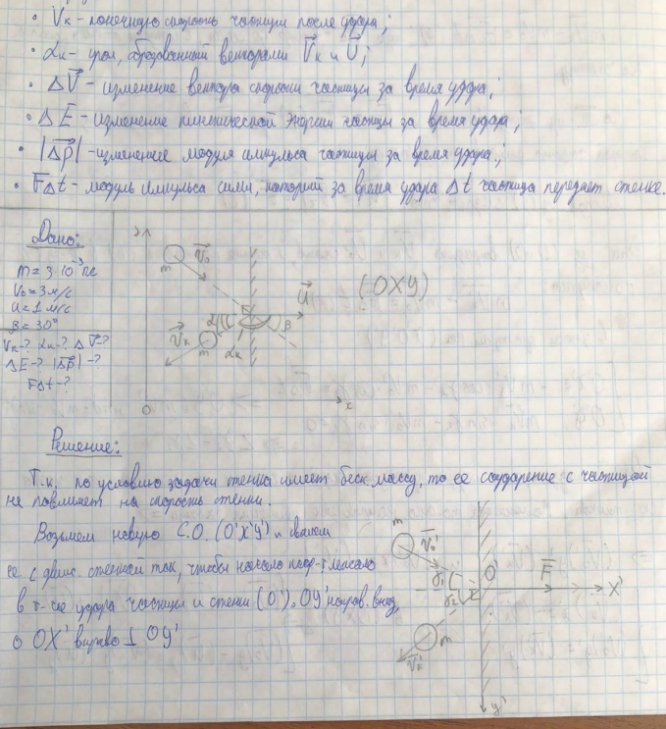 • Vк - конечную скорость частицы после удара;
• αк - угол, образованный векторами V⃗к и U⃗;
• ΔV⃗ - изменение вектора скорости частицы за время удара;
• ΔE - изменение кинетической энергии частицы за время удара;
• |Δp⃗| - изменение модуля импульса частицы за время удара;
• F⃗Δt - модуль импульса силы, который за время удара Δt частица передает стенке.
Дано:
m = 3·10⁻³ кг
V₀ = 3 м/с
U = 1 м/с
β = 30°
Vк-? αк-? ΔV⃗-?
ΔE-? |Δp⃗|-?
FΔt-?
y
m
V⃗₀
(OXY)
U⃗
β
V⃗к
m
αк
O
x
Решение:
Т.к. по условию задачи стенка имеет беск. массу, то ее соударение с частицей
не повлияет на скорость стенки.
Возьмем новую С.О. (O'X'Y') и свяжем
ее с движ. стенкой так, чтобы начало лежало
в т-ке удара частицы и стенки (O'). OY' направ. вниз,
а OX' вправо ⊥ OY'
m
V⃗₀'
O'
F⃗
X'
m
V⃗к'
y'